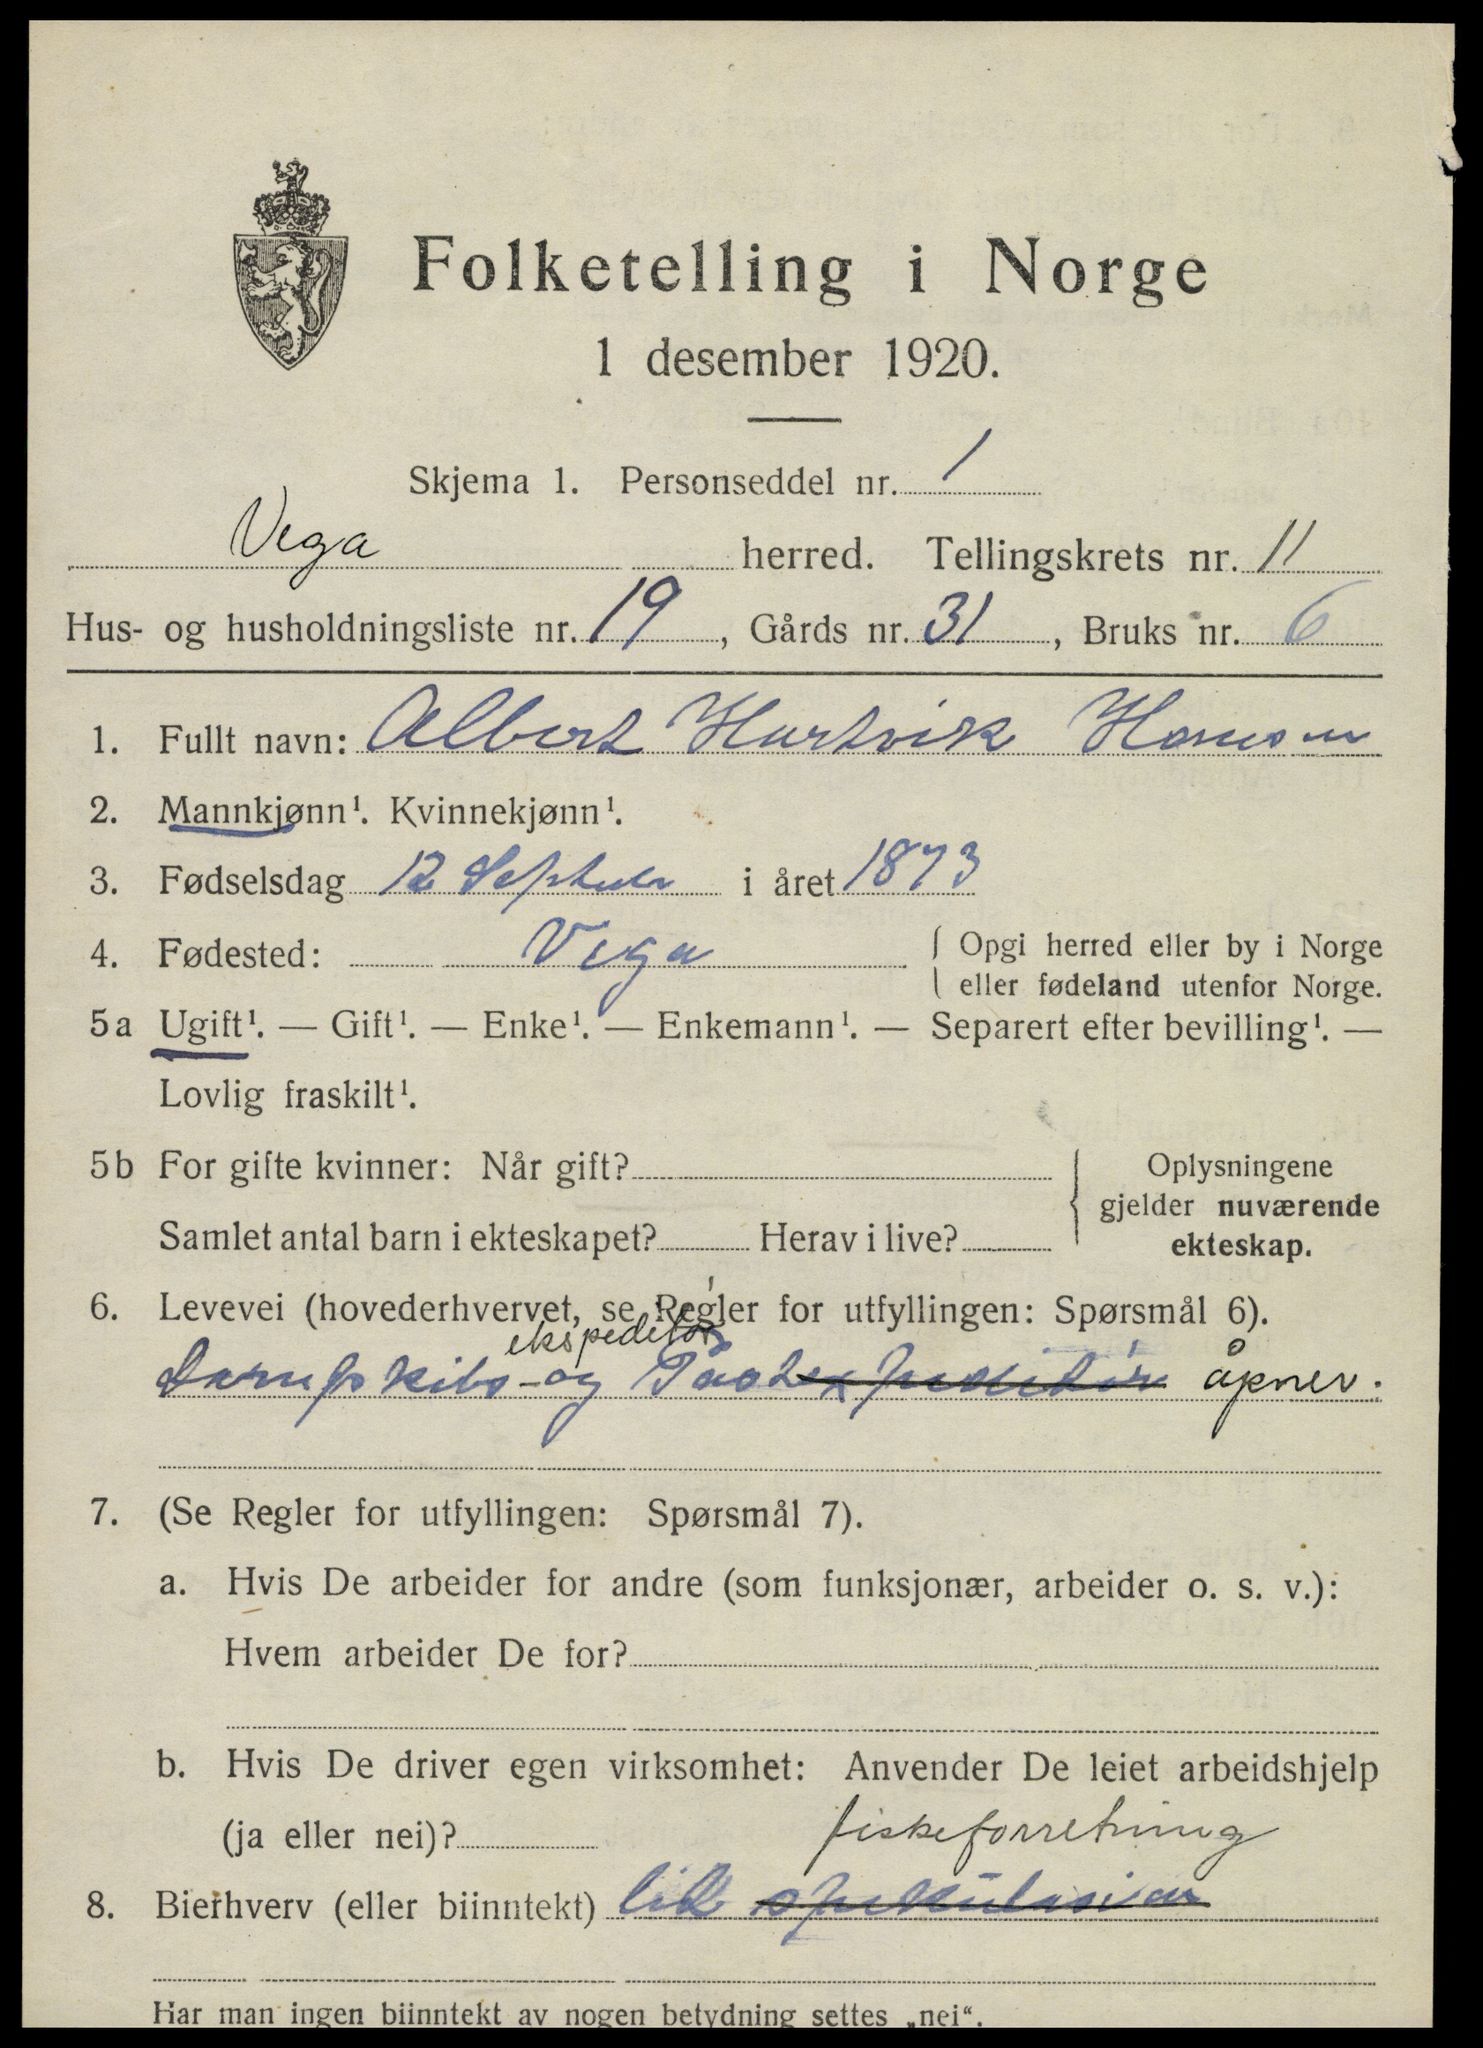 Folketelling i Norge
1 desember 1920.
Skjema 1. Personseddel nr. 1
Vega herred. Tellingskrets nr. 11
Hus- og husholdningsliste nr. 19, Gårds nr. 31, Bruks nr. 6
1. Fullt navn: Albert Hartvik Hansen
2. Mannkjønn¹. Kvinnekjønn¹.
3. Fødselsdag 12 September i året 1873
4. Fødested: Vega { Opgi herred eller by i Norge
eller fødeland utenfor Norge.
5a Ugift¹. — Gift¹. — Enke¹. — Enkemann¹. — Separert efter bevilling¹. —
Lovlig fraskilt¹.
5b For gifte kvinner: Når gift? Oplysningene
gjelder nuværende
Samlet antal barn i ekteskapet? Herav i live? ekteskap.
6. Levevei (hovederhvervet, se Regler for utfyllingen: Spørsmål 6).
ekspeditør
Dampskibs- og Postexpeditør åpner.
7. (Se Regler for utfyllingen: Spørsmål 7).
a. Hvis De arbeider for andre (som funksjonær, arbeider o. s. v.):
Hvem arbeider De for?
b. Hvis De driver egen virksomhet: Anvender De leiet arbeidshjelp
(ja eller nei)? fiskeforretning
8. Bierhverv (eller biinntekt) litt spekulasion
Har man ingen biinntekt av nogen betydning settes „nei“.